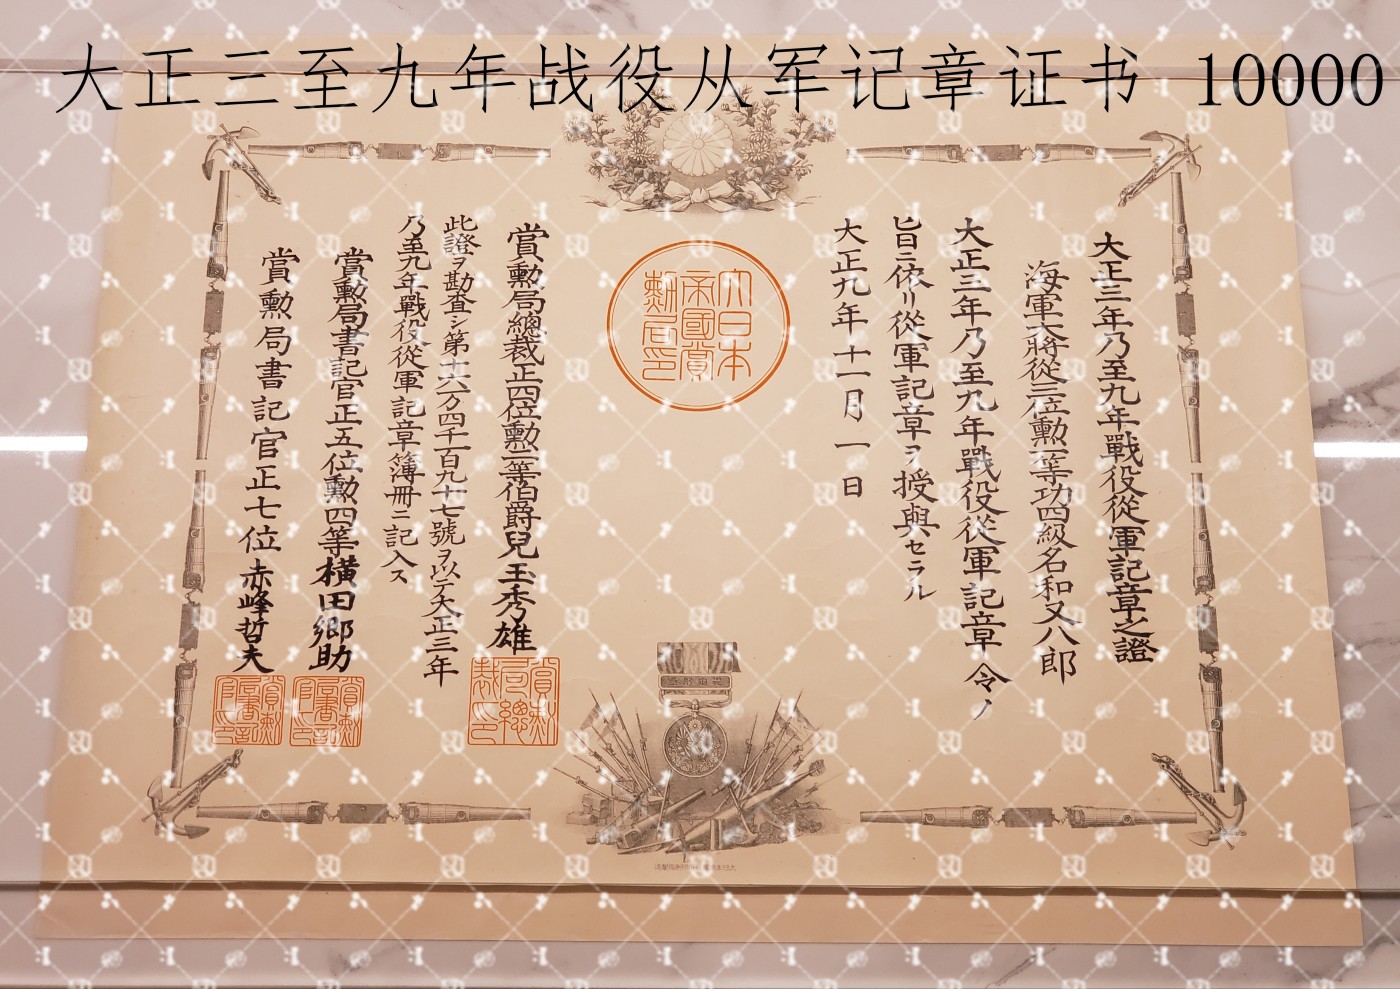 大正三至九年战役从军记章证书 10000
大正三年乃至九年戰役從軍記章之證
海軍大將從三位勲一等功四級名和又八郎
大正三年乃至九年戰役從軍記章令ノ
旨ニ依リ從軍記章ヲ授與セラル
大正九年十一月一日
大日本
帝國賞
勲局印
賞勲局總裁正四位勲二等伯爵兒玉秀雄
此證ヲ勘査シ第 六万四千百九十七號ヲ以テ大正三年
乃至九年戰役從軍記章簿冊ニ記入ス
賞勲局書記官正五位勲四等横田郷助
賞勲局書記官正七位赤峰哲夫